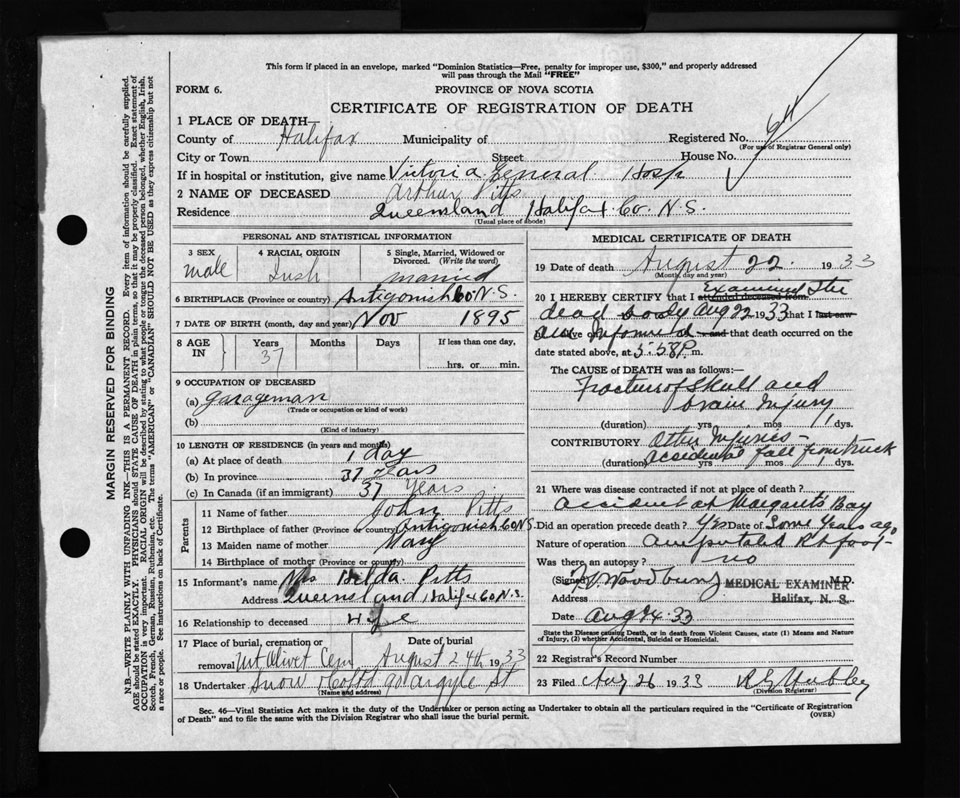 This form if placed in an envelope, marked "Dominion Statistics—Free, penalty for improper use, $300," and properly addressed
will pass through the Mail "FREE"
FORM 6.
PROVINCE OF NOVA SCOTIA
CERTIFICATE OF REGISTRATION OF DEATH
1 PLACE OF DEATH
County of Halifax Municipality of Registered No. 64
(For use of Registrar General only)
City or Town Street House No.
If in hospital or institution, give name Victoria General Hosp
2 NAME OF DECEASED Arthur Pitts
Residence Queensland Halifax Co. N.S.
(Usual place of abode)
MARGIN RESERVED FOR BINDING
N.B.—WRITE PLAINLY WITH UNFADING INK—THIS IS A PERMANENT RECORD. Every item of information should be carefully supplied.
AGE should be stated EXACTLY. PHYSICIANS should STATE CAUSE OF DEATH in plain terms, so that it may be properly classified. Exact statement of
OCCUPATION is very important. RACIAL ORIGIN will be described by stating to what people or tongue the deceased person belonged, whether English, Irish,
Scotch, French, German, Russian, Ruthenian, etc. The terms "AMERICAN" or "CANADIAN" SHOULD NOT BE USED as they express citizenship but not
a race or people. See instructions on back of Certificate.
PERSONAL AND STATISTICAL INFORMATION
3 SEX 4 RACIAL ORIGIN 5 Single, Married, Widowed or
Divorced. (Write the word)
male Irish married
6 BIRTHPLACE (Province or country) Antigonish Co. N.S.
7 DATE OF BIRTH (month, day and year) Nov 1895
8 AGE IN Years Months Days If less than one day,
37
hrs. or min.
9 OCCUPATION OF DECEASED
(a) garageman
(Trade or occupation or kind of work)
(b)
(Kind of industry)
10 LENGTH OF RESIDENCE (in years and months)
(a) At place of death 1 day
(b) In province 37 years
(c) In Canada (if an immigrant) 37 Years
Parents
11 Name of father John Pitts
12 Birthplace of father (Province or country) Antigonish Co N.S.
13 Maiden name of mother Mary
14 Birthplace of mother (Province or country)
15 Informant's name Mrs Hilda Pitts
Address Queensland, Halifax Co N.S.
16 Relationship to deceased Wife
17 Place of burial, cremation or Date of burial
removal Mt Olivet Cem August 24th 1933
18 Undertaker Snow & Co Ltd 90 Argyle St
(Name and address)
MEDICAL CERTIFICATE OF DEATH
19 Date of death August 22. 1933
(Month, day and year)
20 I HEREBY CERTIFY that I attended deceased from Examined the
dead body Aug 22 1933 that I last saw
and informed and that death occurred on the
date stated above, at 5.58 P. m.
The CAUSE OF DEATH was as follows:—
Fracture of skull and
brain Injury
(duration) yrs. mos. 1 dys.
CONTRIBUTORY Other Injuries—
accidental fall from truck
(duration) yrs. mos. 1 dys.
21 Where was disease contracted if not at place of death?
accident at Margarets Bay
Did an operation precede death? Yes Date of Some Years ago
Nature of operation Amputated Rt foot—
Was there an autopsy? no
(Signed) M.D.
MEDICAL EXAMINER
Address Halifax, N. S.
Date Aug 24.33
State the Disease causing Death, or in death from Violent Causes, state (1) Means and Nature
of Injury, (2) whether Accidental, Suicidal or Homicidal.
22 Registrar's Record Number
23 Filed Aug 26 1933
(Division Registrar)
Sec. 46—Vital Statistics Act makes it the duty of the Undertaker or person acting as Undertaker to obtain all the particulars required in the "Certificate of Registration
of Death" and to file the same with the Division Registrar who shall issue the burial permit.
(OVER)